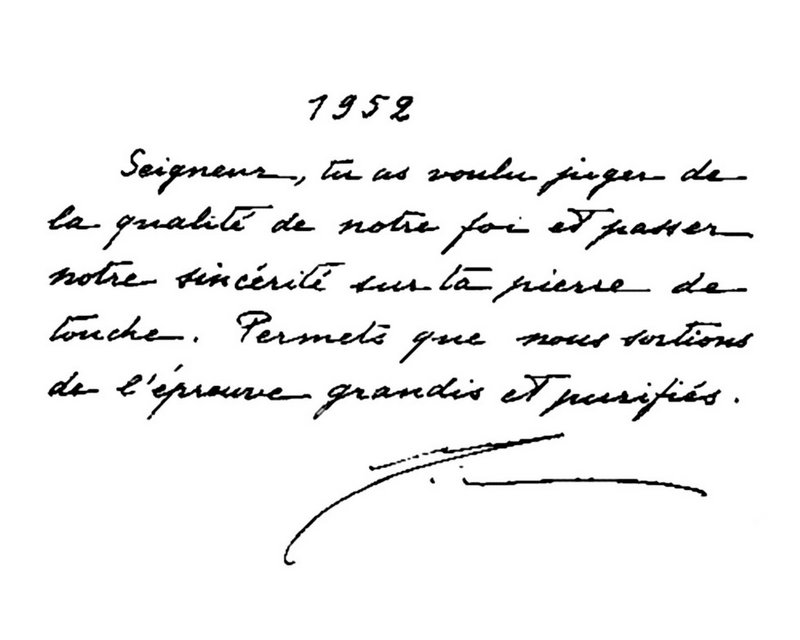 1952
Seigneur, tu as voulu juger de
la qualité de notre foi et passer
notre sincérité sur ta pierre de
touche. Permets que nous sortions
de l'épreuve grandis et purifiés.